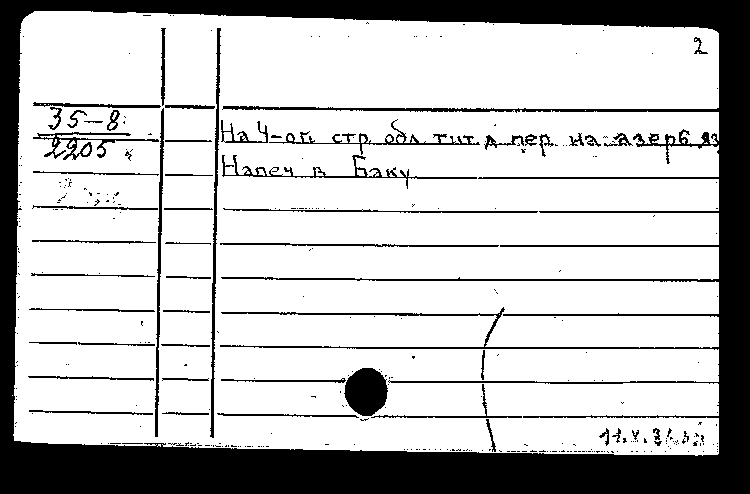 2
35-8
2205
На 4-ой стр. обл. тит. л. пер. на азерб. яз
Напеч. в Баку